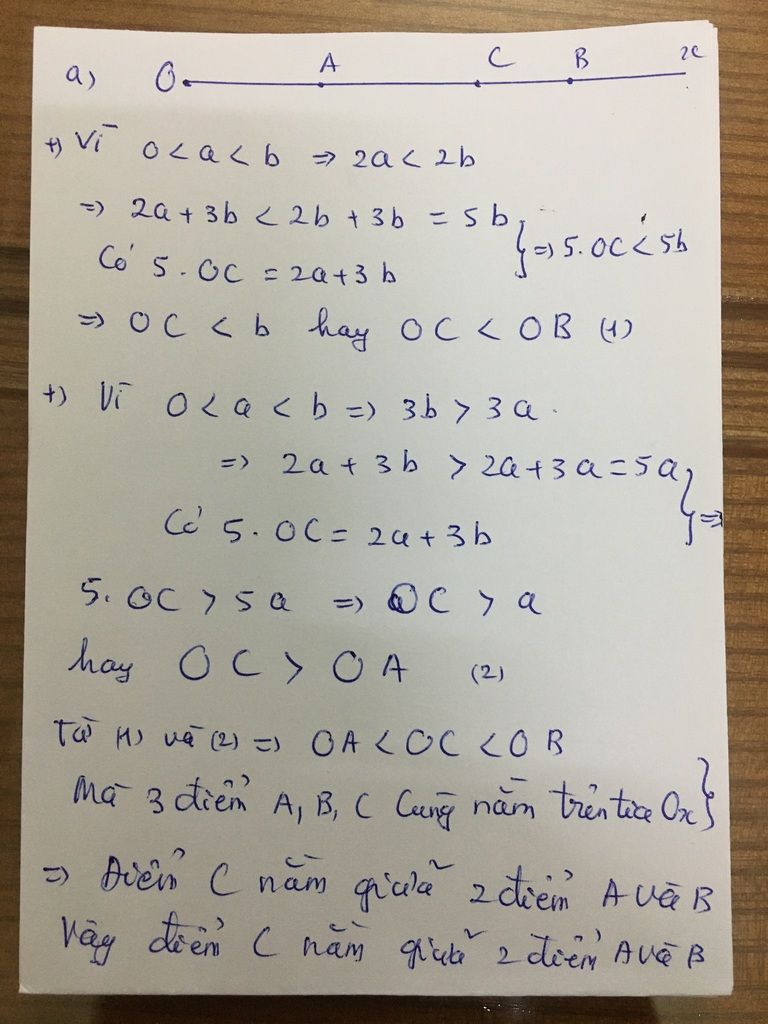 a) O A C B x
+) Vì 0 < a < b => 2a < 2b
=> 2a + 3b < 2b + 3b = 5b
Có 5.OC = 2a+3b } => 5.OC < 5b
=> OC < b hay OC < OB (1)
+) Vì 0 < a < b => 3b > 3a.
=> 2a + 3b > 2a+3a = 5a
Có 5.OC = 2a+3b } =>
5.OC > 5a => OC > a
hay OC > OA (2)
Từ (1) và (2) => OA < OC < OB
Mà 3 điểm A, B, C Cùng nằm trên tia Ox }
=> Điểm C nằm giữa 2 điểm A và B
Vậy điểm C nằm giữa 2 điểm A và B